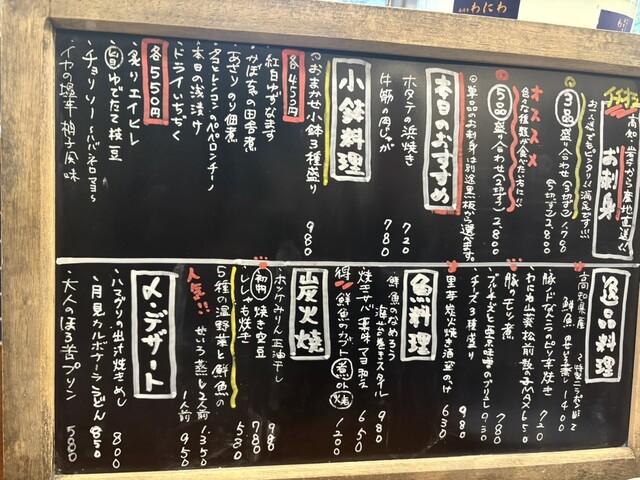 わにわ
高知・岩手から産地直送!!
お刺身
お二人でもピッタリ!!満足です!!!
3品盛り合わせ(3切ずつ) 1,790
オススメ
色々な種類が食べたい方に!!
5品盛り合わせ(2切ずつ) 2,800
※単品のお刺身は別途黒板から選べます。
本日のおすすめ
ホタテの浜焼き 720
牛筋の肉じゃが 780
小鉢料理
おまかせ小鉢3種盛り 980
各450円
・紅白ゆずなます
・かぼちゃの田舎煮
・あさりの佃煮
・タコとレンコンのペペロンチーノ
・本日の浅漬け
・ドライいちぢく
各550円
・炙りエイヒレ
・旨ゆでたて枝豆
・チョリソー〜ハバネロマヨ〜
・イカの塩辛 柚子風味
逸品料理
高知県産
鮮魚の
1,400
720
650
豚のモツ煮 780
930
チーズ3種盛り 980
里芋炭火焼き酒盗のっけ 630
魚料理
鮮魚のなめろう
海苔巻きスタイル 980
焼モサバ薬味マヨ和え 650
得 鮮魚のカブト(煮or焼) 1,200
炭火焼
ホッケみりん正油干し 980
初物 焼き空豆 780
ししゃも焼き 580
5種の温野菜と鮮魚の
せいろ蒸し 2人前 1,350
人気!!! 1人前 950
〆・デザート
・ハマグリの出汁焼きめし 800
・月見カルボナーラうどん 850
・大人のほろ苦プリン 580